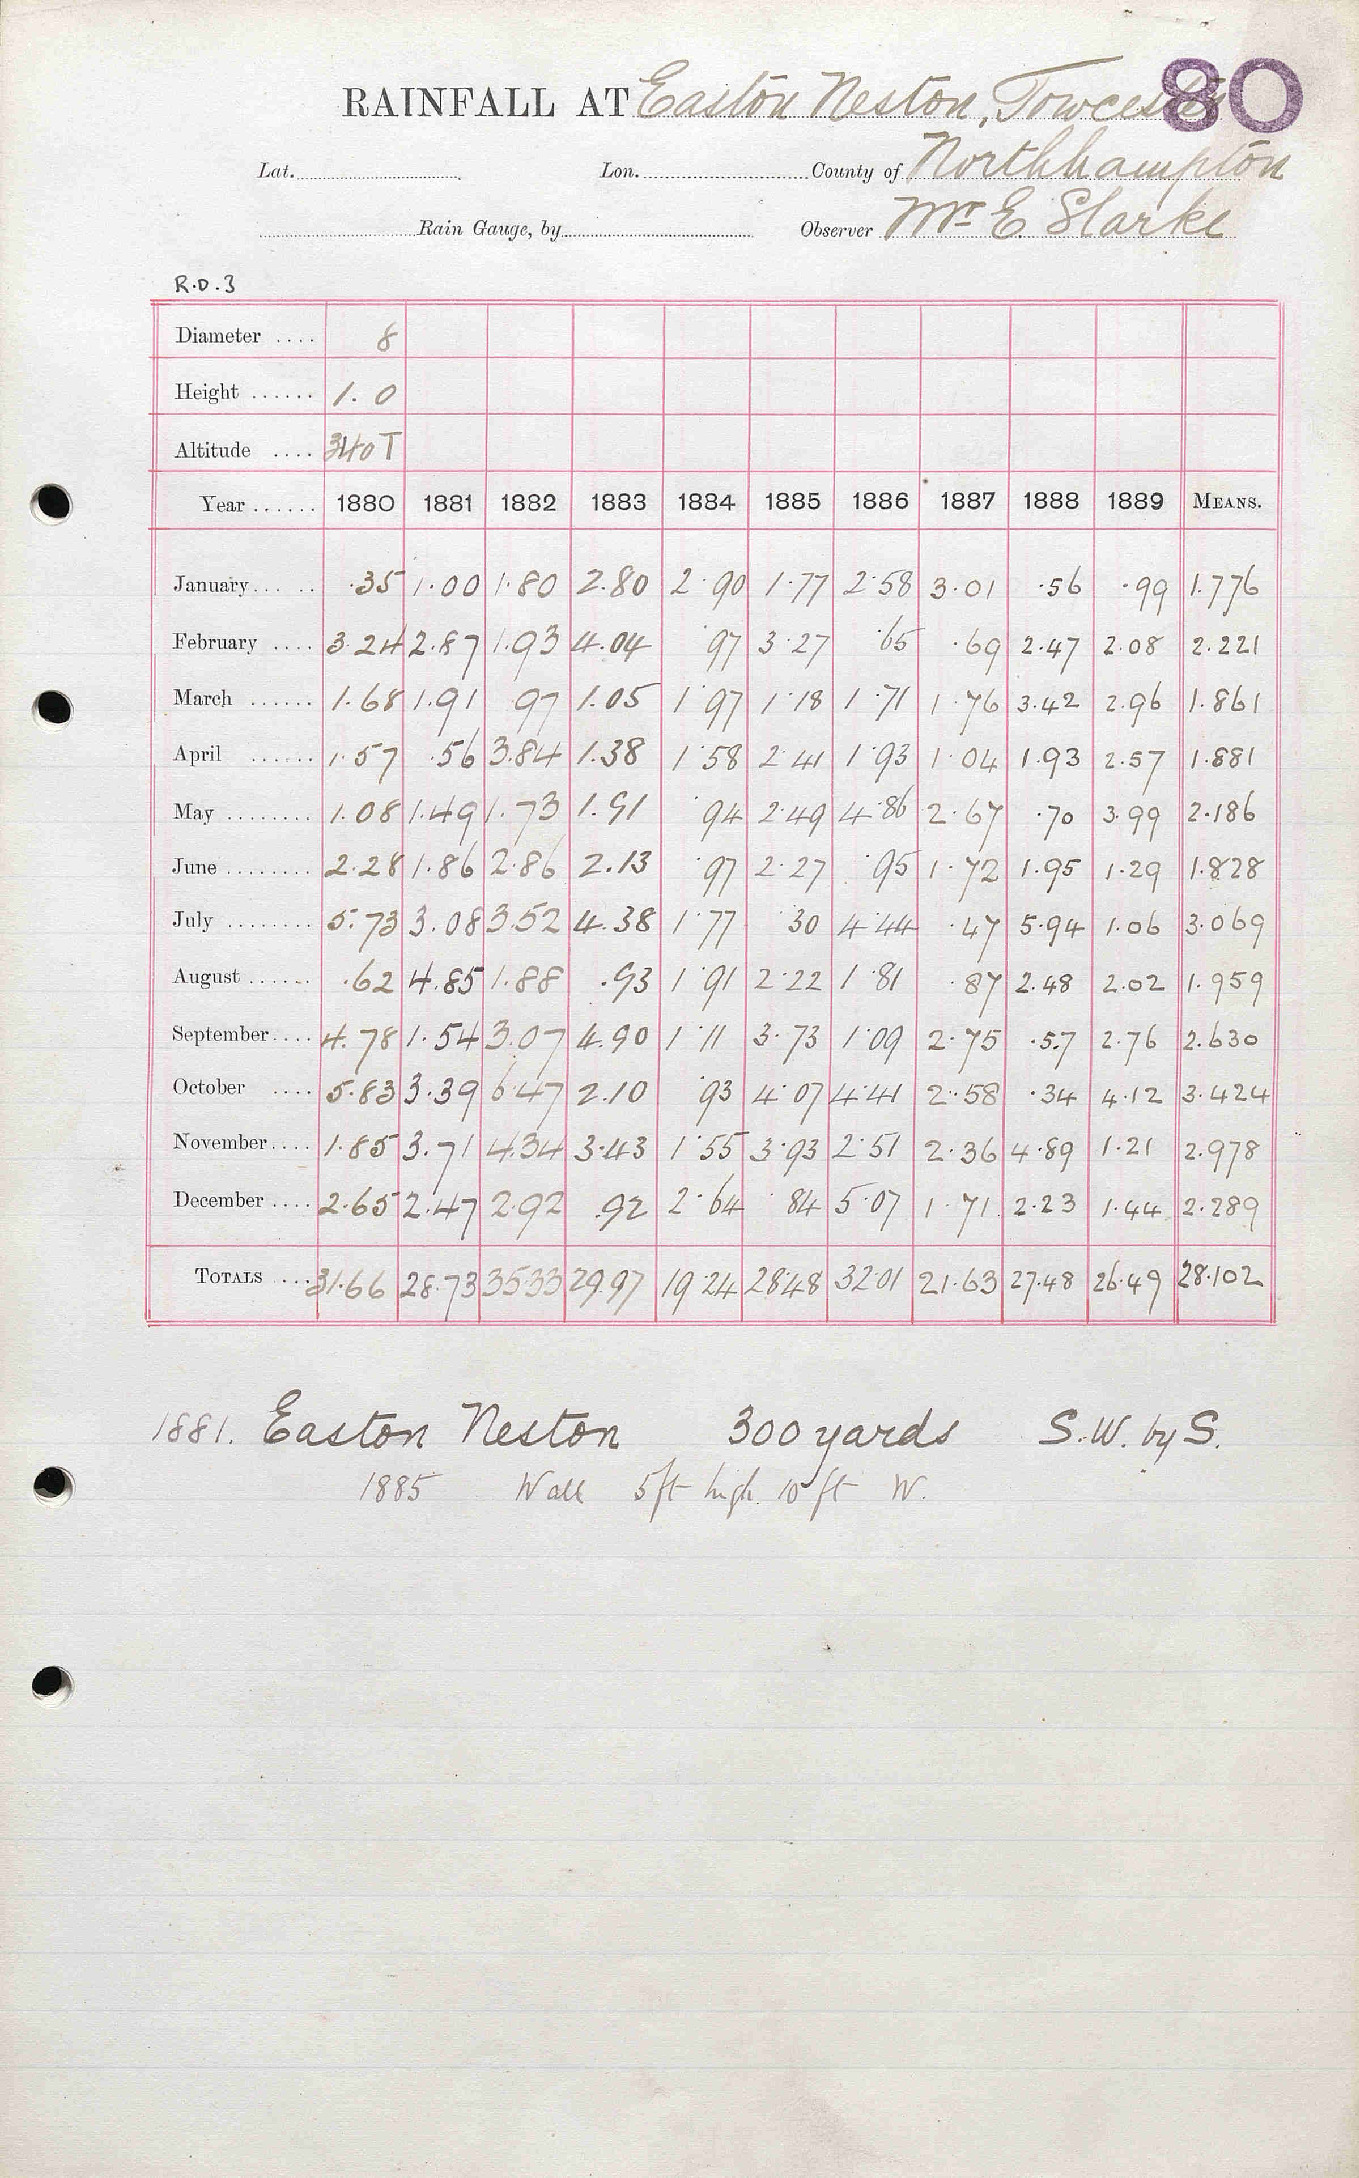 80
RAINFALL AT Easton Neston, Towcester
Lat. Lon. County of Northhampton
Rain Gauge, by Observer Mr E. Slarke
R.D.3
Diameter .... 8
Height ...... 1.0
Altitude .... 340T
Year ...... 1880 1881 1882 1883 1884 1885 1886 1887 1888 1889 MEANS.
January ...... .35 1.00 1.80 2.80 2.90 1.77 2.58 3.01 .56 .99 1.776
February .... 3.24 2.87 1.93 4.04 .97 3.27 .65 .69 2.47 2.08 2.221
March ...... 1.68 1.91 .97 1.05 1.97 1.18 1.71 1.76 3.42 2.96 1.861
April ...... 1.57 .56 3.84 1.38 1.58 2.41 1.93 1.04 1.93 2.57 1.881
May ........ 1.08 1.49 1.73 1.91 .94 2.49 4.86 2.67 .70 3.99 2.186
June ........ 2.28 1.86 2.86 2.13 .97 2.27 .95 1.72 1.95 1.29 1.828
July ........ 5.73 3.08 3.52 4.38 1.77 .30 4.44 .47 5.94 1.06 3.069
August ...... .62 4.85 1.88 .93 1.91 2.22 1.81 .87 2.48 2.02 1.959
September .... 4.78 1.54 3.07 4.90 1.11 3.73 1.09 2.75 .57 2.76 2.630
October .... 5.83 3.39 6.47 2.10 .93 4.07 4.41 2.58 .34 4.12 3.424
November .... 1.85 3.71 4.34 3.43 1.55 3.93 2.51 2.36 4.89 1.21 2.978
December .... 2.65 2.47 2.92 .92 2.64 .84 5.07 1.71 2.23 1.44 2.289
TOTALS ... 31.66 28.73 35.33 29.97 19.24 28.48 32.01 21.63 27.48 26.49 28.102
1881. Easton Neston 300 yards S.W. by S.
1885 Wall 5ft high 10ft W.